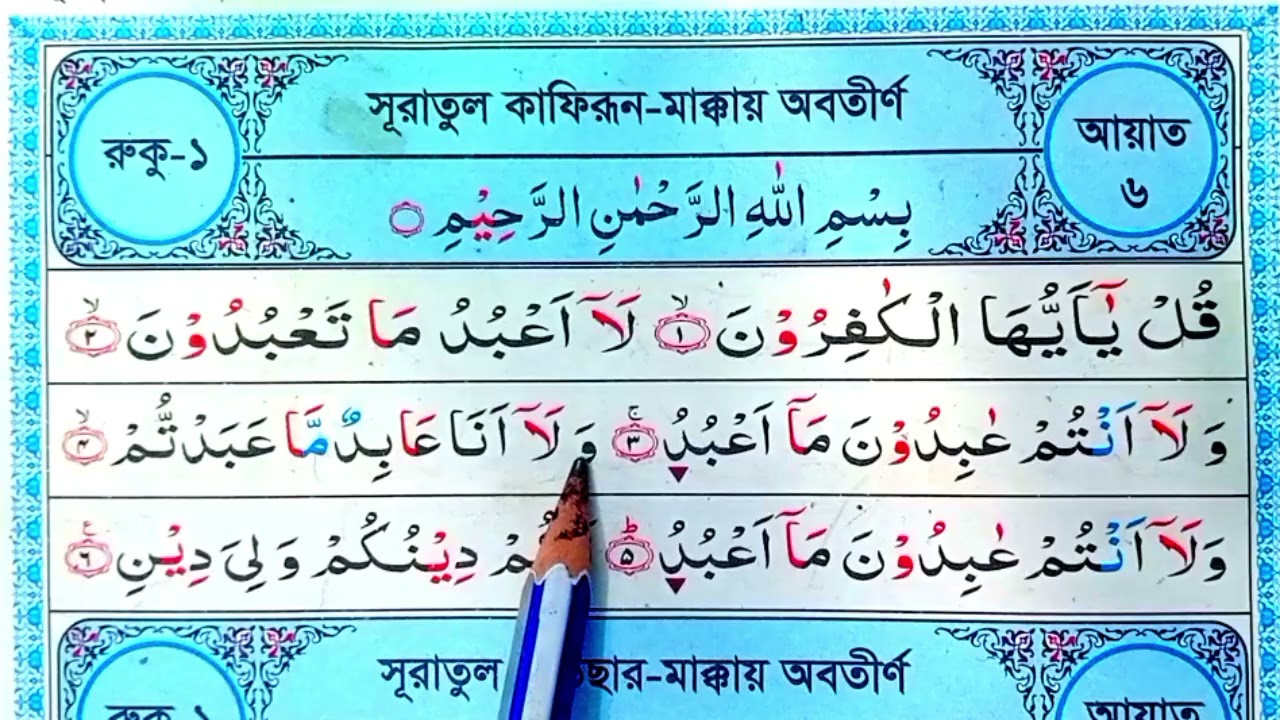 রুকু-১
সূরাতুল কাফিরূন-মাক্কায় অবতীর্ণ
আয়াত
৬
بِسْمِ اللّٰهِ الرَّحْمٰنِ الرَّحِيْمِ
قُلْ يٰٓاَيُّهَا الْكٰفِرُوْنَ ۙ﴿١﴾ لَآ اَعْبُدُ مَا تَعْبُدُوْنَ ۙ﴿٢﴾
وَلَآ اَنْتُمْ عٰبِدُوْنَ مَآ اَعْبُدُ ۚ﴿٣﴾ وَلَآ اَنَا عَابِدٌ مَّا عَبَدْتُّمْ ۙ﴿۴﴾
وَلَآ اَنْتُمْ عٰبِدُوْنَ مَآ اَعْبُدُ ؕ﴿۵﴾ دِيْنُكُمْ وَلِىَ دِيْنِ ﴿٦﴾
সূরাতুল
মাক্কায় অবতীর্ণ
আয়াত